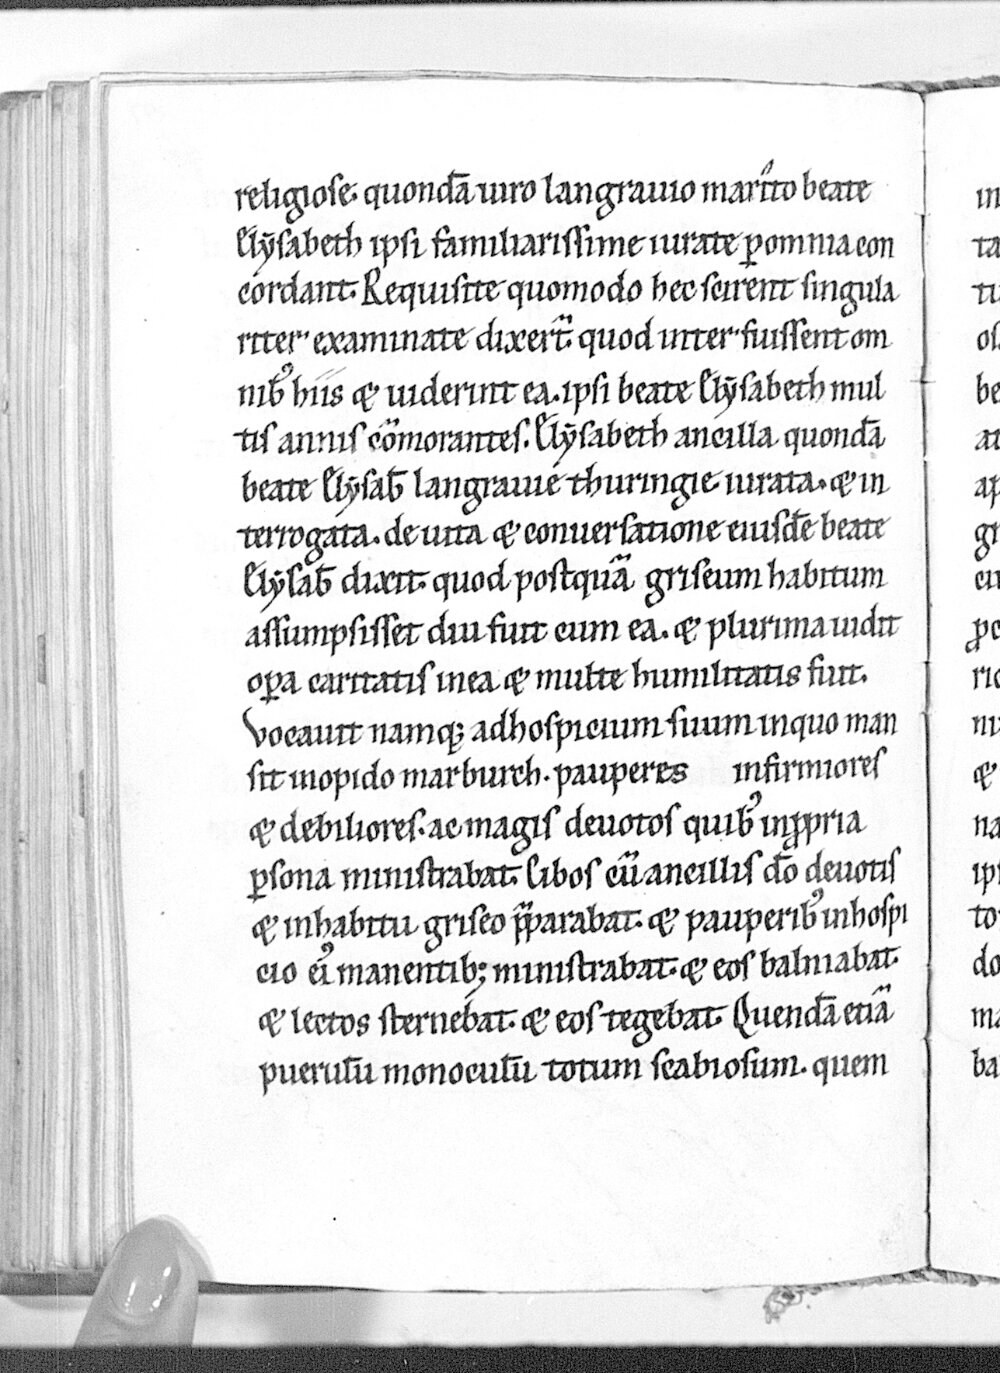 religiose. quondā uiro langrauio marito beate
Elẏsabeth ipsi familiarissime iurate ꝑ omnia con
cordant. Requisite quomodo hec scirent singula
riter examinate dixert̄ quod inter fuissent om
nib᾽ hiis ⁊ uiderint ea. ipsi beate Elẏsabeth mul
tis annis cōmorantes. Elẏsabeth ancilla quondā
beate Elẏsab̄ langrauie thuringie iurata. ⁊ in
terrogata. de uita ⁊ conuersatione eiusd̄e beate
Elẏsab̄ dixit. quod postquā griseum habitum
assumpsisset diu fuit cum ea. ⁊ plurima uidit
oꝑa caritatis in ea ⁊ multe humilitatis fuit.
Vocauit namq; ad hospicium suum in quo man
sit in opido marburch. pauperes infirmiores
⁊ debiliores. ac magis deuotos quib᾽ in ꝓpria
ꝑsona ministrabat. Cibos cū ancillis d̄o deuotis
⁊ in habitu griseo p̄parabat. ⁊ pauperib᾽ in hospi
cio ei᾽ manentib; ministrabat. ⁊ eos balniabat.
⁊ lectos sternebat. ⁊ eos tegebat. Quendā etiā
puerul̄u monocul̄u totum scabiosum. quem
in
ta
tu
os
be
at
ap
gr
cu
ꝓc
ric
ni
⁊
na
ipi
to
do
ma
ba